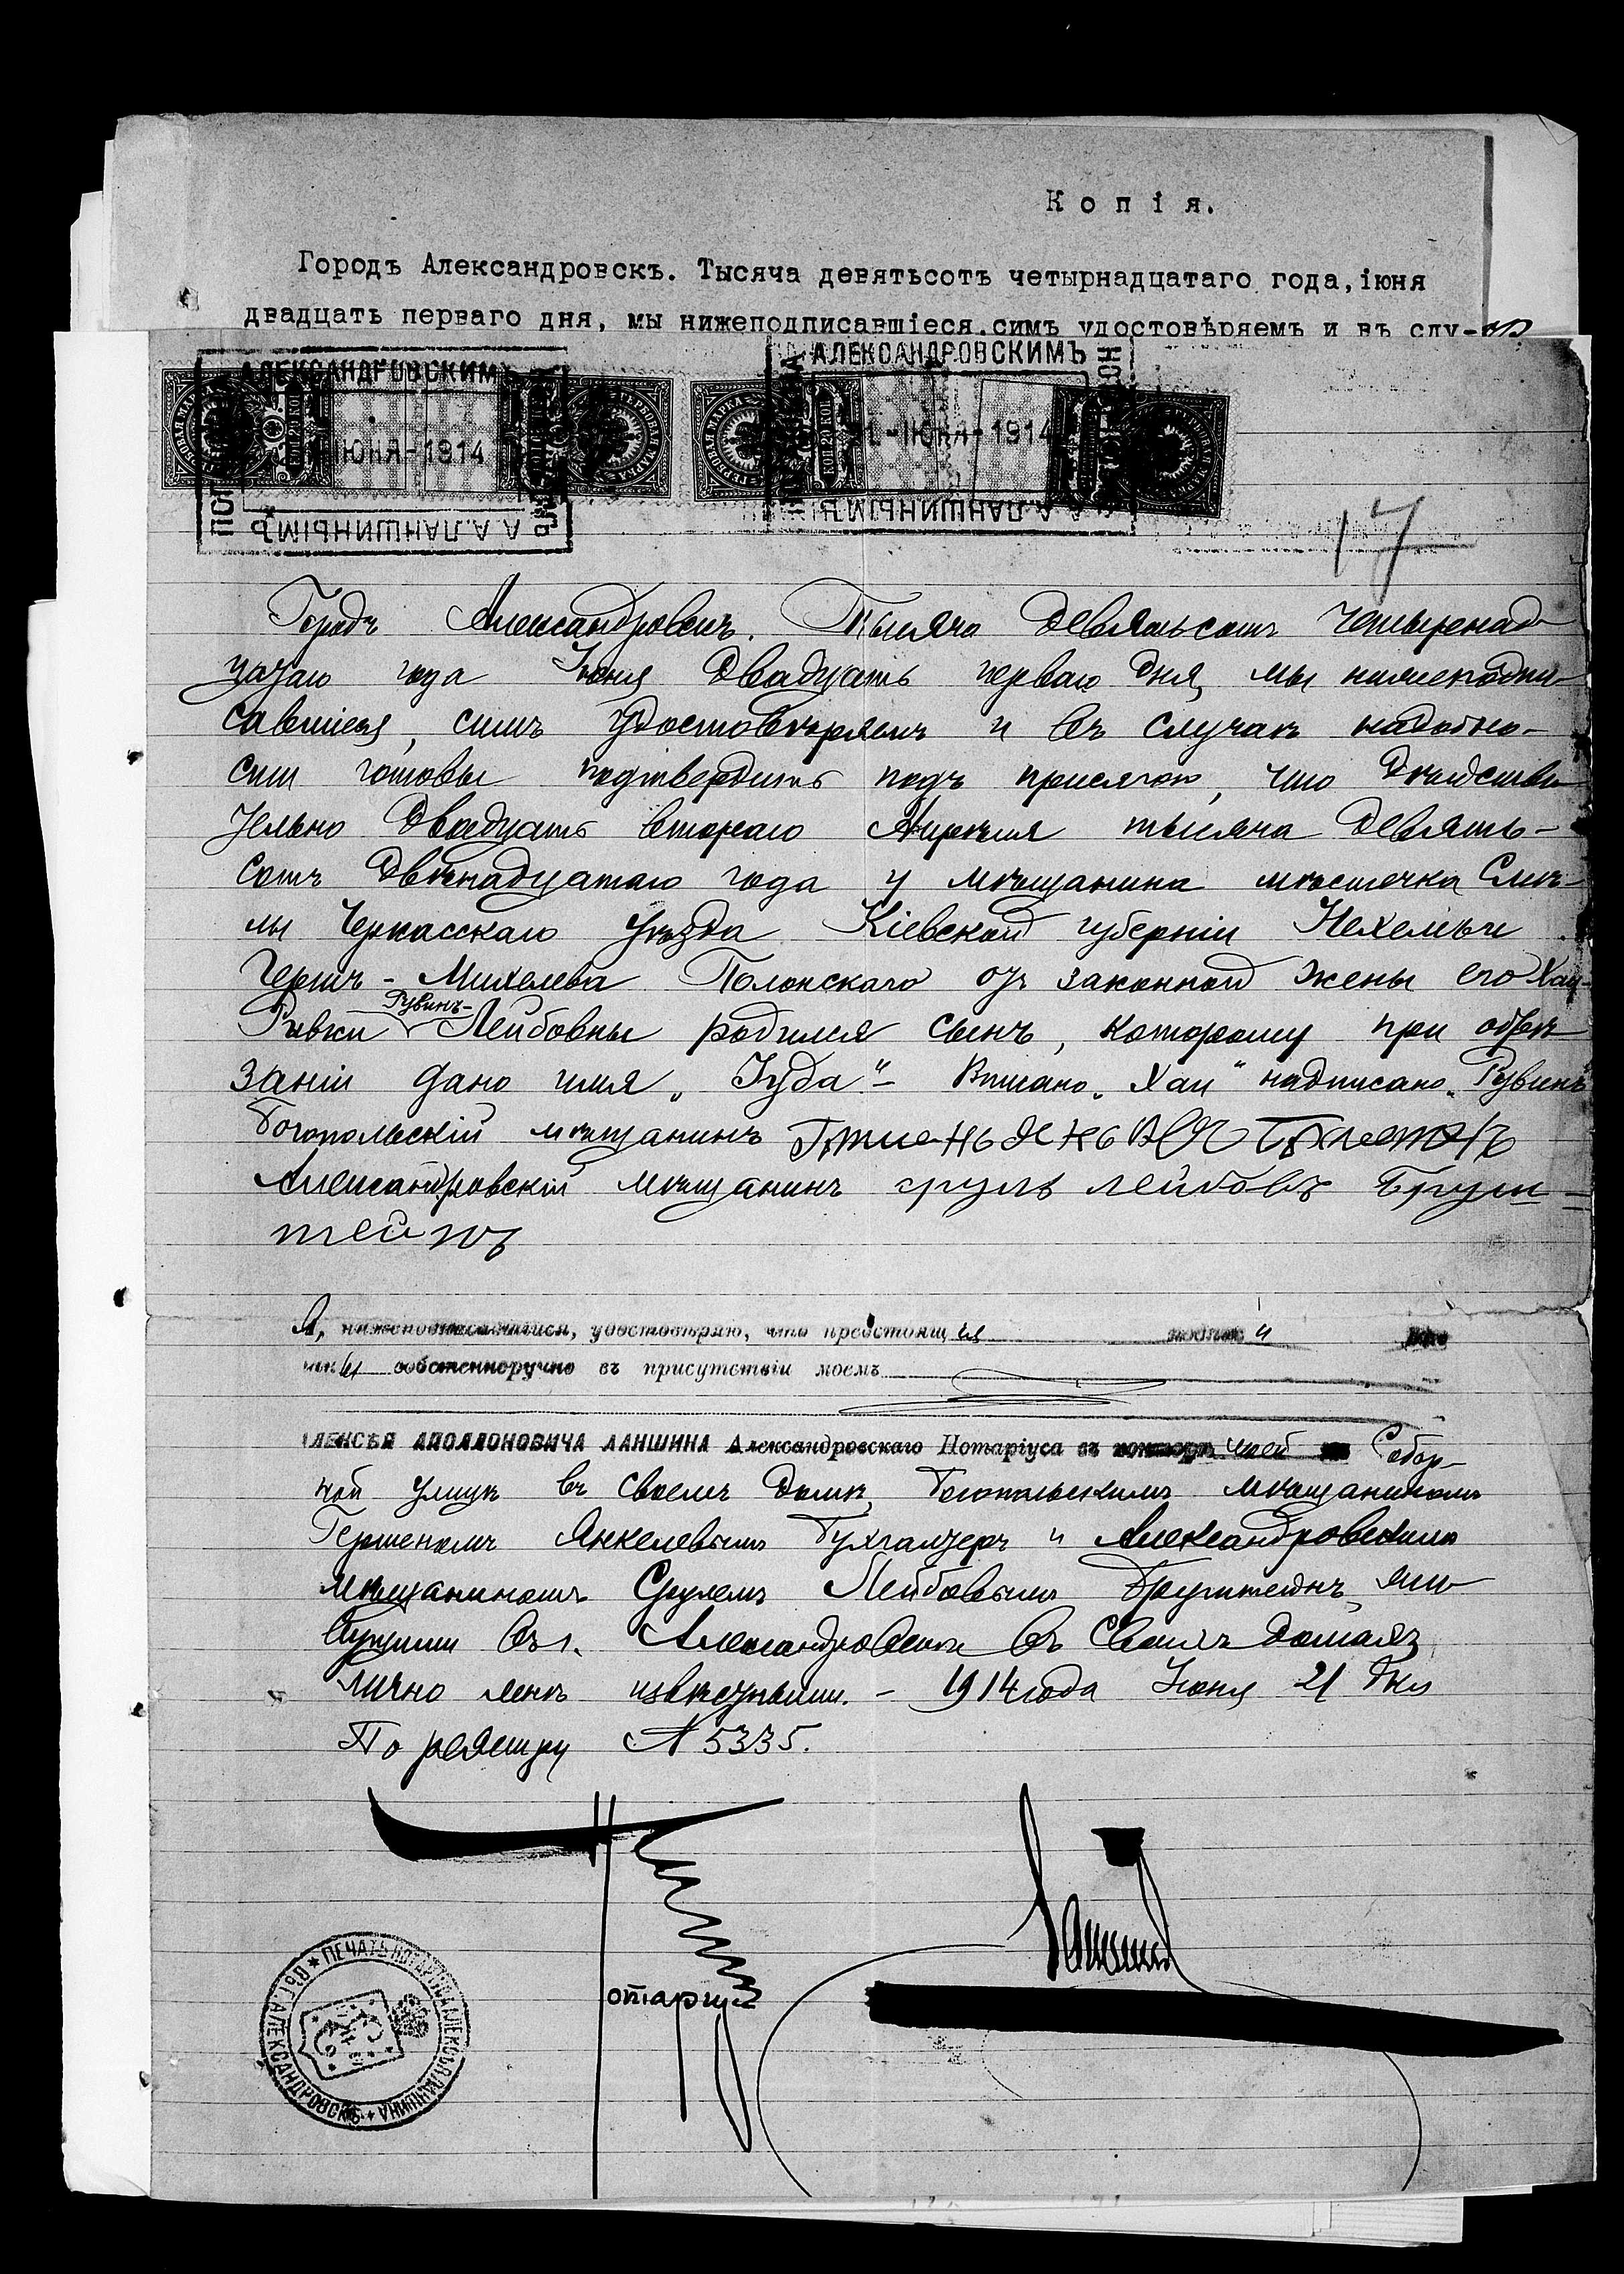 Копія.
Городъ Александровскъ. Тысяча девятьсотъ четырнадцатаго года, іюня
двадцать перваго дня, мы нижеподписавшіеся, симъ удостовѣряемъ и въ слу-
АЛЕКСАНДРОВСКИМЪ
АЛЕКСАНДРОВСКИМЪ
ІЮНЯ-1914
21-ІЮНЯ-1914
А.А.ЛАНШИНЫМЪ
А.А.ЛАНШИНЫМЪ
17
Городъ Александровскъ. Тысяча девятьсотъ четырнад-
цатаго года Іюня двадцать перваго дня, мы нижеподпи-
савшіеся, симъ удостовѣряемъ и въ случаѣ надобно-
сти готовы подтвердить подъ присягою, что дѣйстви-
тельно двадцать втораго Апрѣля тысяча девять-
сотъ двѣнадцатаго года у мѣщанина мѣстечка Смѣ-
лы Черкасскаго уѣзда Кіевской губерніи Нехемьи
Герш-Михелева Полонскаго отъ законной жены его Хаи-
Рувинъ-
Ривки Лейбовны родился сынъ, которому при обрѣ-
заніи дано имя „Іуда“ - Вписано „Хаи“ надписано „Рувинъ“
Богопольскій мѣщанинъ
Александровскій мѣщанинъ сруль лейбовъ Бруш-
тейнъ
Я, нижеподписавшійся, удостовѣряю, что предстоящія подписи
собственноручно въ присутствіи моемъ
АЛЕКСѢЯ АПОЛЛОНОВИЧА ЛАНШИНА Александровскаго Нотаріуса въ конторѣ моей на Собор-
ной улицѣ въ своемъ домѣ, Богопольскимъ мѣщаниномъ
Гершеномъ Янкелевымъ Бухгалтеръ и Александровскимъ
мѣщаниномъ Срулемъ Лейбовымъ Бруштейнъ, жи-
вущими въ г. Александровскѣ въ своихъ домахъ,
лично мнѣ извѣстными. - 1914 года Іюня 21 дня
По реестру № 5335.
Нотаріусъ
Ланшинъ
ПЕЧАТЬ НОТАРІУСА АЛЕКСѢЯ ЛАНШИНА * ВЪ Г. АЛЕКСАНДРОВСКѢ